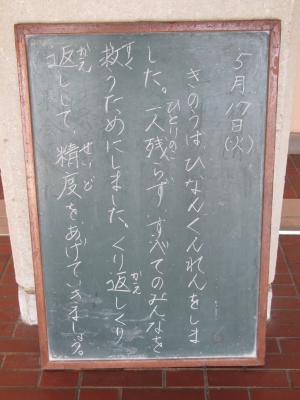 5月17日(火)
きのうはひなんくんれんをしま
した。一人残らず、すべてのみんなを
ひとりのこ
救うためにしました。くり返しくり
すく
かえ
返しして、精度をあげていきましょう。
かえ
せいど